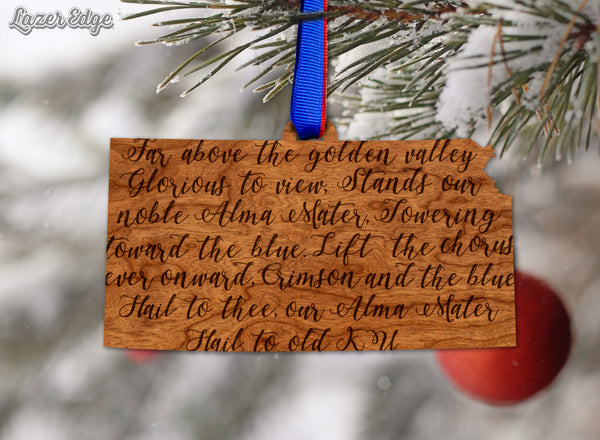 Lazer Edge
Far above the golden valley
Glorious to view, Stands our
noble Alma Mater, Towering
toward the blue. Lift the chorus
ever onward, Crimson and the blue
Hail to thee, our Alma Mater
Hail to old KU